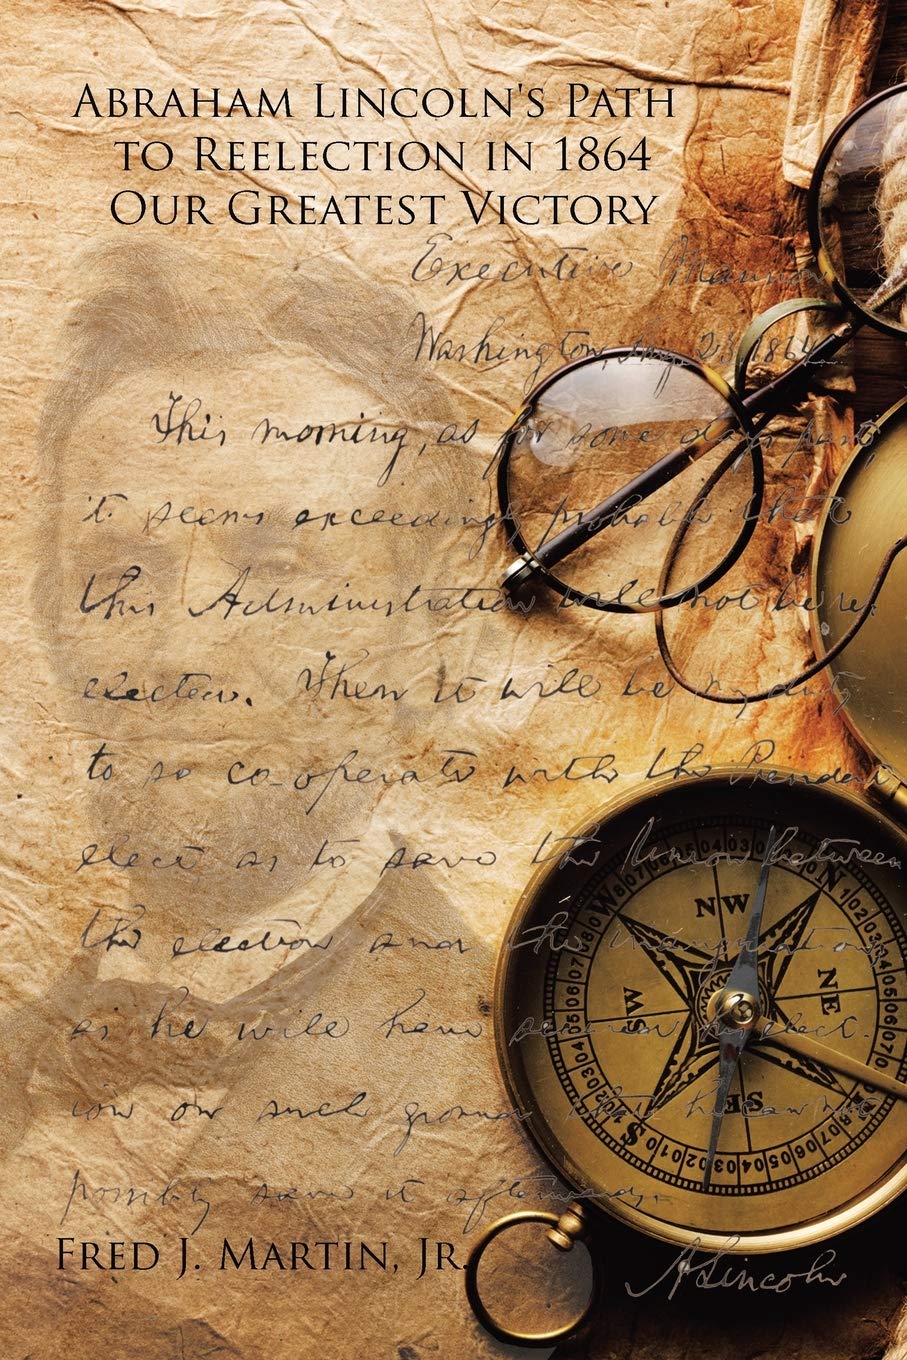 Abraham Lincoln's Path
to Reelection in 1864
Our Greatest Victory
Executive Mansion
Washington, Aug. 23, 1864.
This morning, as for some days past,
it seems exceedingly probable that
this Administration will not be re-
elected. Then it will be my duty
to so co-operate with the President
elect as to save the Union between
the election and the inauguration;
as he will have secured his elect-
ion on such ground that he can not
possibly save it afterwards.
A. Lincoln
Fred J. Martin, Jr.
NW
N
NE
W
SW
SE
S